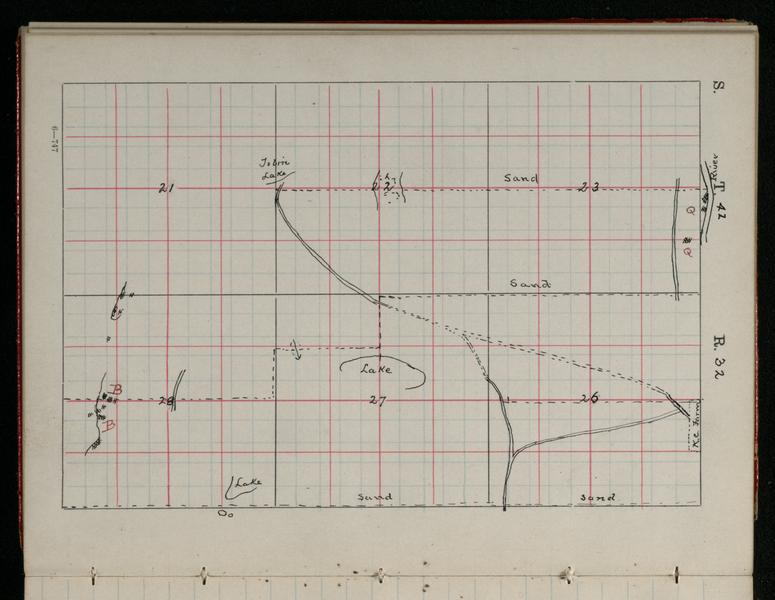 S. T 42 R. 32
6—747
Tobin
Lake
21
22
Sand
23
River
Q
Q
Sand
B
B
28
Lake
27
26
Farm
Lake
Sand
Sand